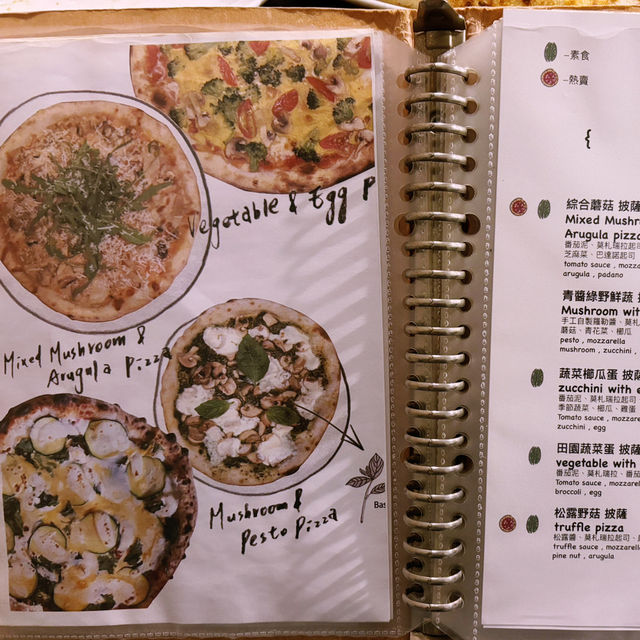 Vegetable & Egg P
Mixed Mushroom &
Arugula Pizza
Mushroom &
Pesto Pizza
Bas
–素食
–熱賣
{
綜合蘑菇 披薩
Mixed Mushr
Arugula pizza
番茄泥、莫札瑞拉起司
芝麻菜、巴達諾起司
tomato sauce , mozza
arugula , padano
青醬綠野鮮蔬
Mushroom wit
手工自製羅勒醬、莫札
蘑菇、青花菜、櫛瓜
pesto , mozzarella
mushroom , zucchini ,
蔬菜櫛瓜蛋 披薩
zucchini with e
番茄泥、莫札瑞拉起司
季節蔬菜、櫛瓜、雞蛋
Tomato sauce , mozzare
zucchini , egg
田園蔬菜蛋 披薩
vegetable with
番茄泥、莫札瑞拉、番茄
Tomato sauce , mozzare
broccoli , egg
松露野菇 披薩
truffle pizza
松露醬、莫札瑞拉起司、
truffle sauce , mozzarel
pine nut , arugula